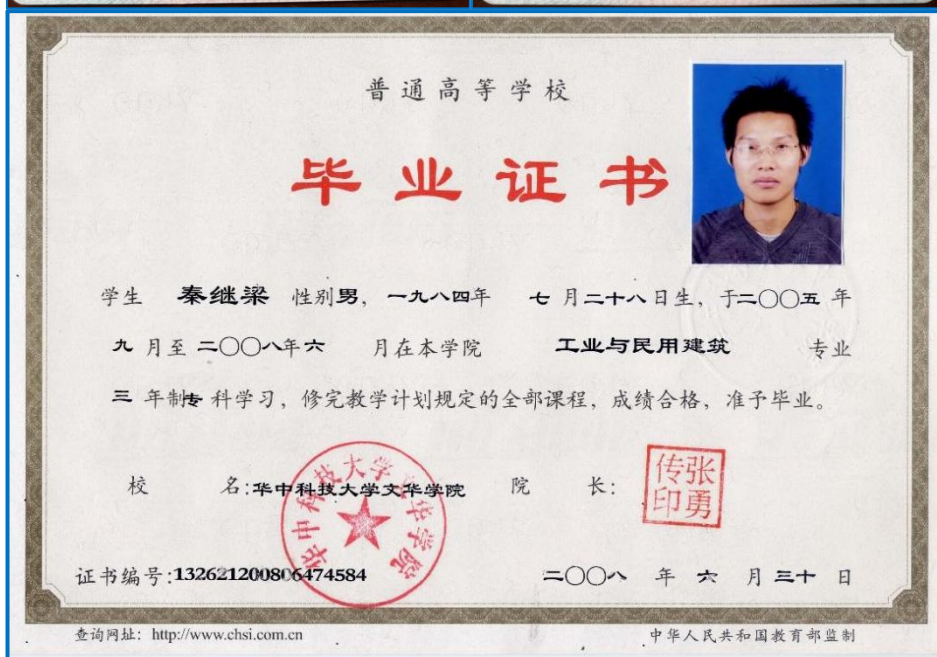 普通高等学校
毕业证书
学生 秦继梁 性别男，一九八四年 七月二十八日生，于二〇〇五年
九月至二〇〇八年六 月在本学院 工业与民用建筑 专业
三年制专科学习，修完教学计划规定的全部课程，成绩合格，准予毕业。
校 名:华中科技大学文华学院 院 长:
华中科技大学文华学院
传张
印勇
证书编号:132621200806474584 二〇〇八 年 六 月 三十 日
查询网址: http://www.chsi.com.cn 中华人民共和国教育部监制